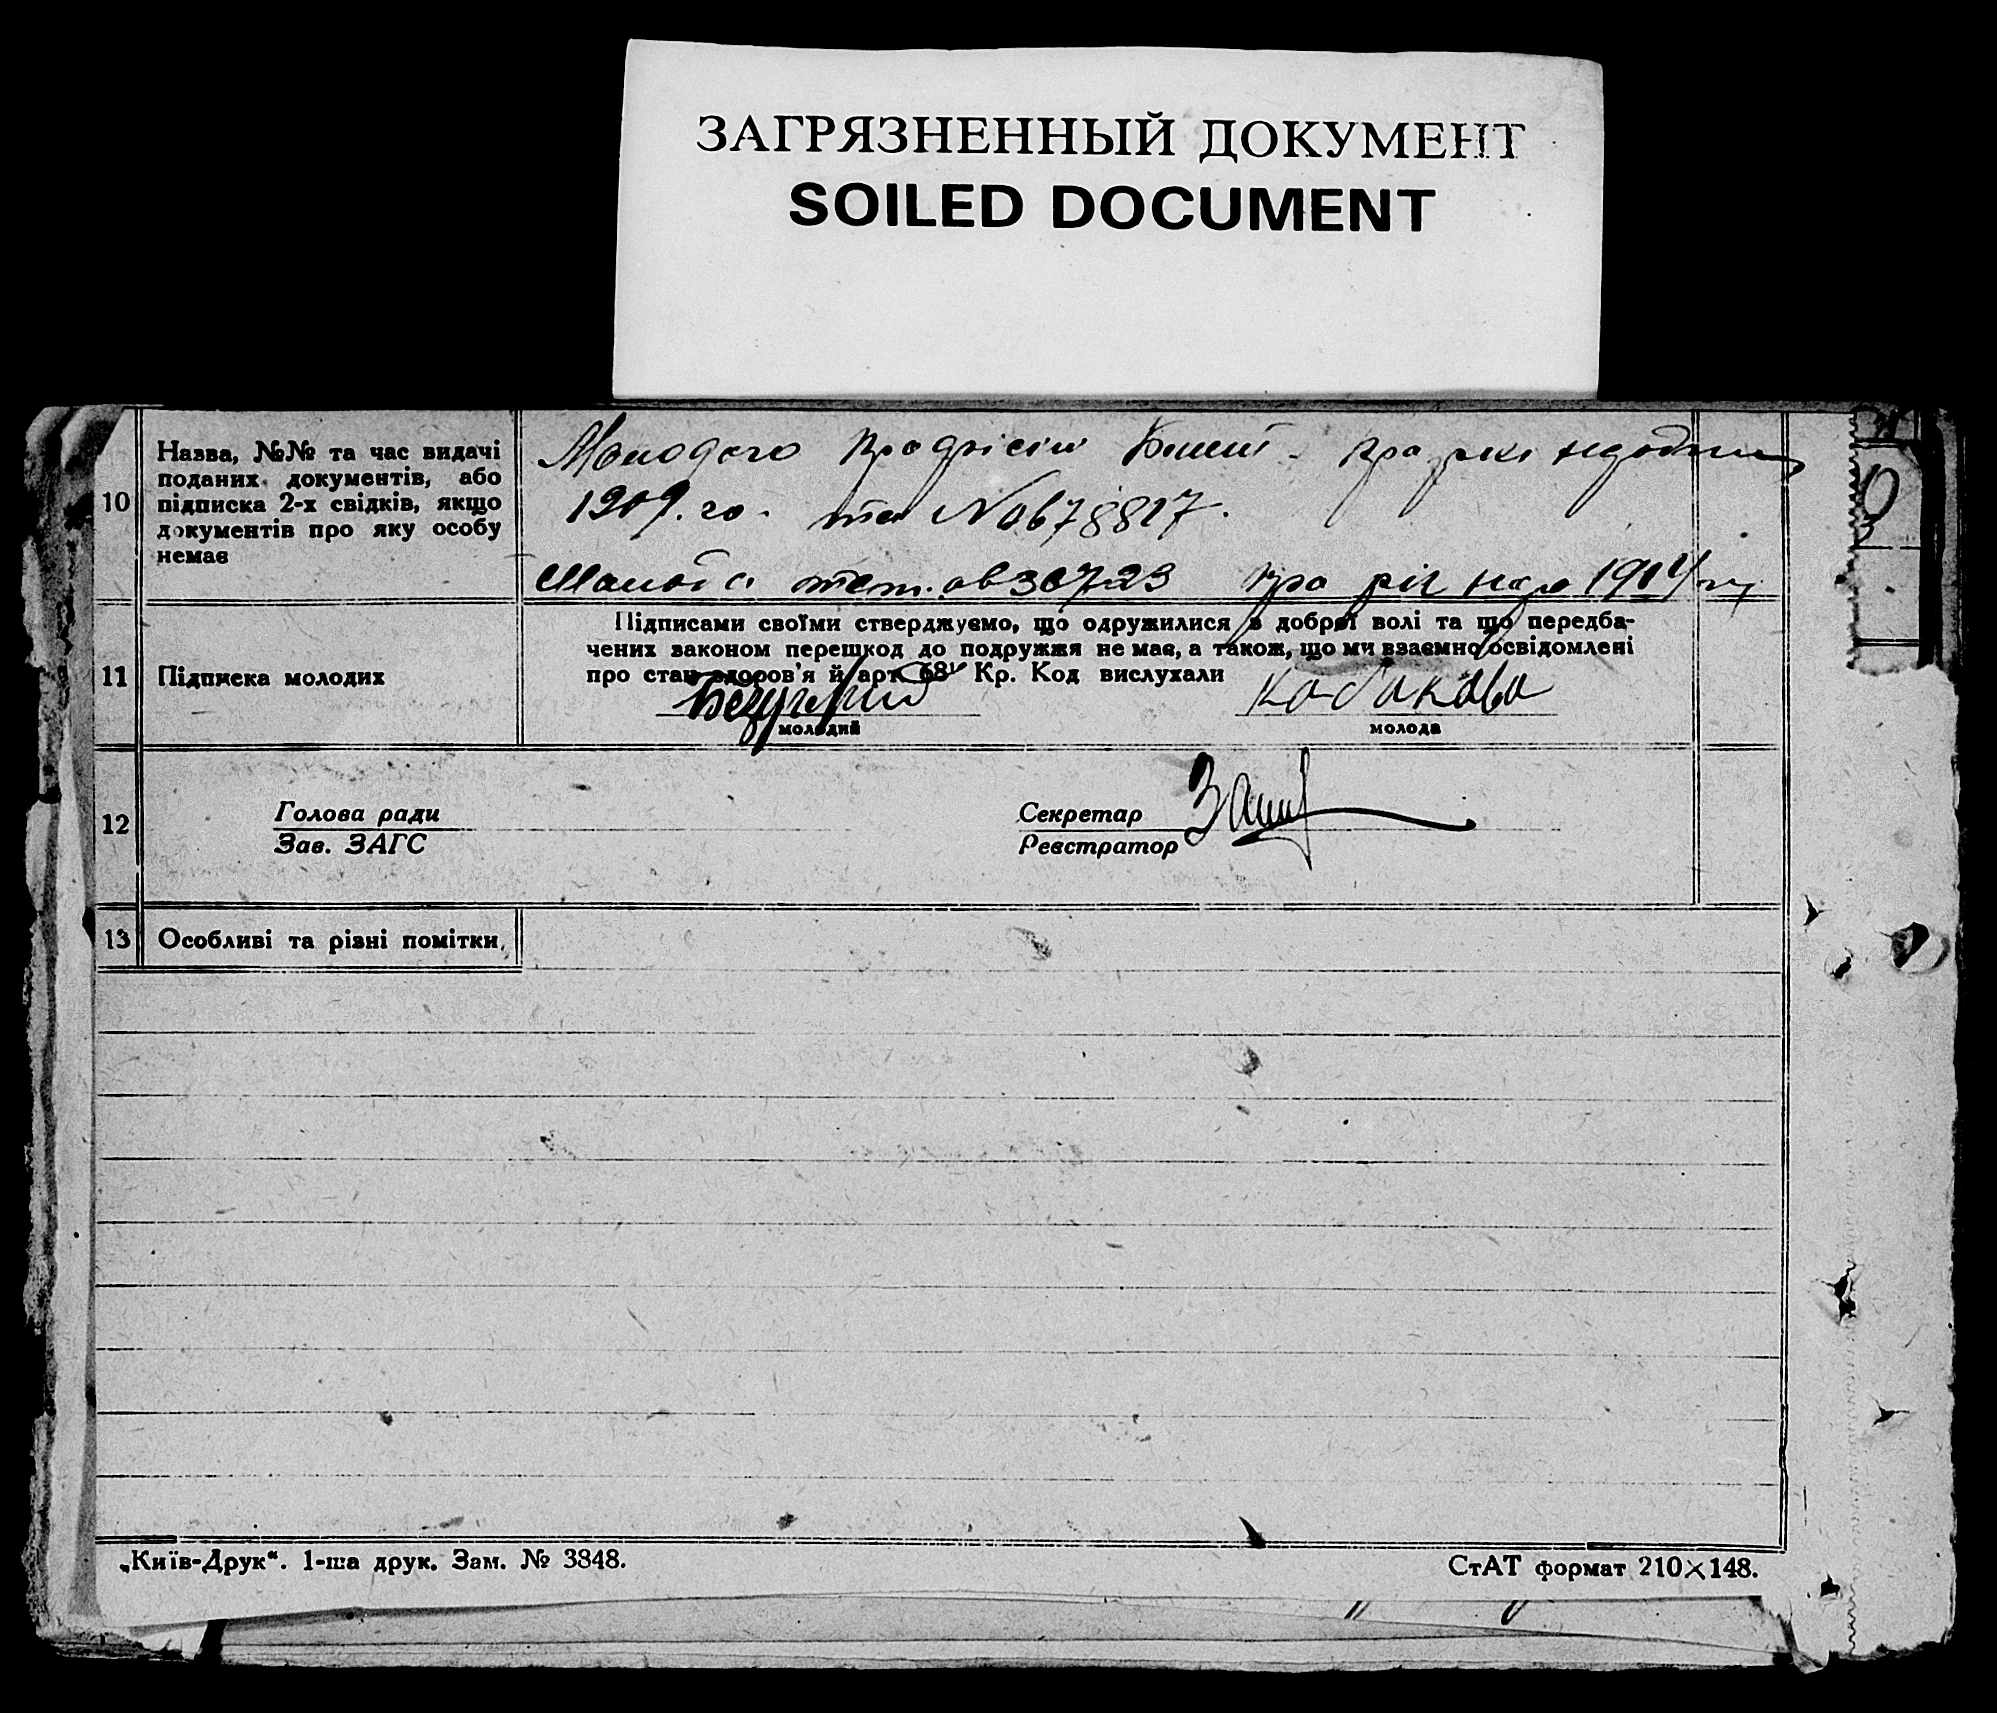 ЗАГРЯЗНЕННЫЙ ДОКУМЕНТ
SOILED DOCUMENT
10
Назва, №№ та час видачі
поданих документів, або
підписка 2-х свідків, якщо
документів про яку особу
немає
Молодого Профспіл. білет про рік
1909.го. та № 0678817.
Молода 3072 про рік 1914
11
Підписка молодих
Підписами своїми стверджуємо, що одружилися з доброї волі та що передба-
чених законом перешкод до подружжя не має, а також, що ми взаємно освідомлені
про стан здоров'я й арт. 68¹ Кр. Код вислухали
молодий
молода
12
Голова ради
Зав. ЗАГС
Секретар
Реєстратор
13
Особливі та різні помітки
„Київ-Друк“. 1-ша друк. Зам. № 3848.
СтАТ формат 210×148.